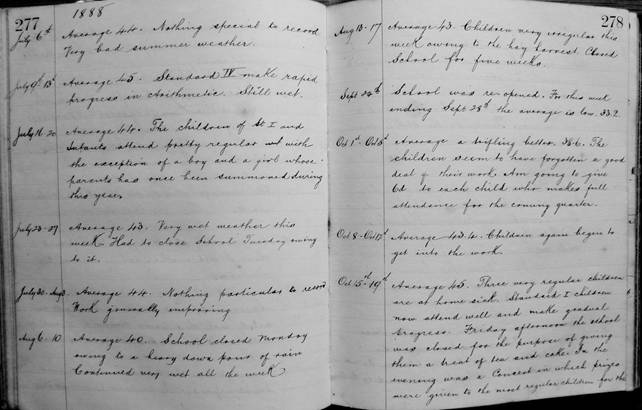 277
1888
July 6th Average 44. Nothing special to record
Very bad summer weather.
July 9th 13th Average 45. Standard IV make rapid
progress in Arithmetic. Still wet.
July 16-20 Average 44. The children of St I and
Infants attend pretty regular with
the exception of a boy and a girl whose
parents has once been summoned during
this year.
July 23-27 Average 43. Very wet weather this
week Had to close School Tuesday owing
to it.
July 30-Aug 3 Average 44. Nothing particular to record
Work generally improving
Aug 6-10 Average 40. School closed Monday
owing to a heavy down pour of rain
Continued very wet all the week
278
Aug 13-17 Average 43. Children very irregular this
week owing to the hay harvest. Closed
School for five weeks.
Sept 24th School was re-opened. For this week
ending Sept 28th the average is low. 33.2.
Oct 1st-Oct 5th Average a trifling better. 38.6. The
children seem to have forgotten a good
deal of their work. Am going to give
6d to each child who makes full
attendance for the coming quarter.
Oct 8-Oct 12th Average 43.4. Children again begin to
get into the work.
Oct 15th-19th Average 45. Three very regular children
are at home sick. Standard I children
now attend well and make gradual
progress. Friday afternoon the school
was closed for the purpose of giving
them a treat of tea and cake. In the
evening was a Concert in which prizes
were given to the most regular children for the